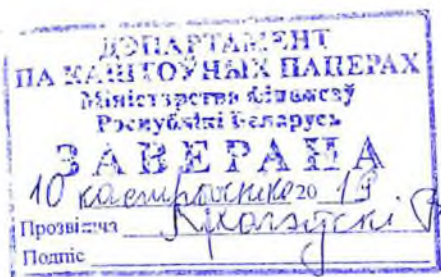 ДЭПАРТАМЕНТ
ПА КАШТОЎНЫХ ПАПЕРАХ
Міністэрства фінансаў
Рэспублікі Беларусь
ЗАВЕРАНА
10 кастрычніка 20 19
Прозвішча
Подпіс